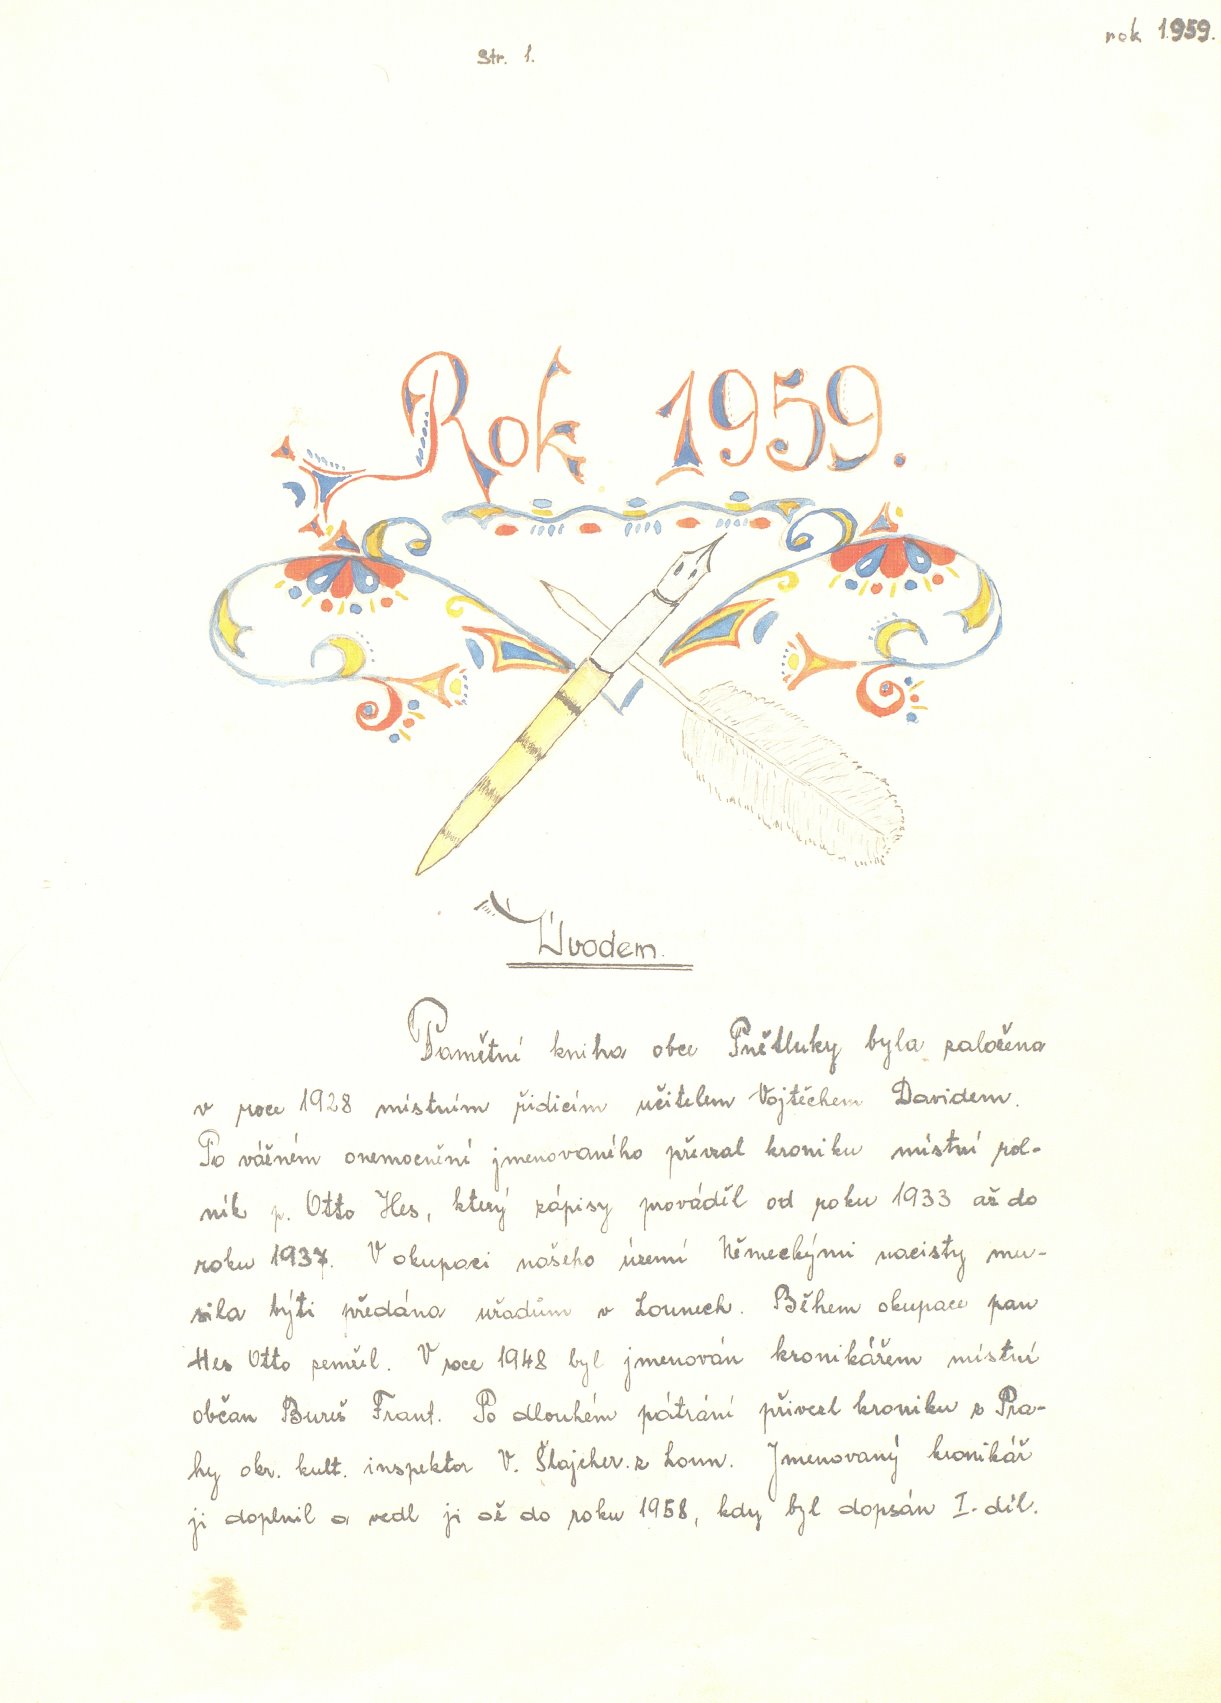 Str. 1.
rok 1959.
Rok 1959.
Úvodem.
Pamětní kniha obce Pnětluky byla založena
v roce 1928 místním řídicím učitelem Vojtěchem Davidem.
Po vážném onemocnění jmenovaného převzal kroniku místní rol-
ník p. Otto Hes, který zápisy prováděl od roku 1933 až do
roku 1937. V okupaci našeho území Německými nacisty mu-
sila býti předána uřadům v Lounech. Během okupace pan
Hes Otto zemřel. V roce 1948 byl jmenován kronikářem místní
občan Bureš Frant. Po dlouhém pátrání přivezl kroniku z Pra-
hy okr. kult. inspektor V. Šlajcher z Loun. Jmenovaný kronikář
ji doplnil a vedl ji až do roku 1958, kdy byl dopsán I. díl.